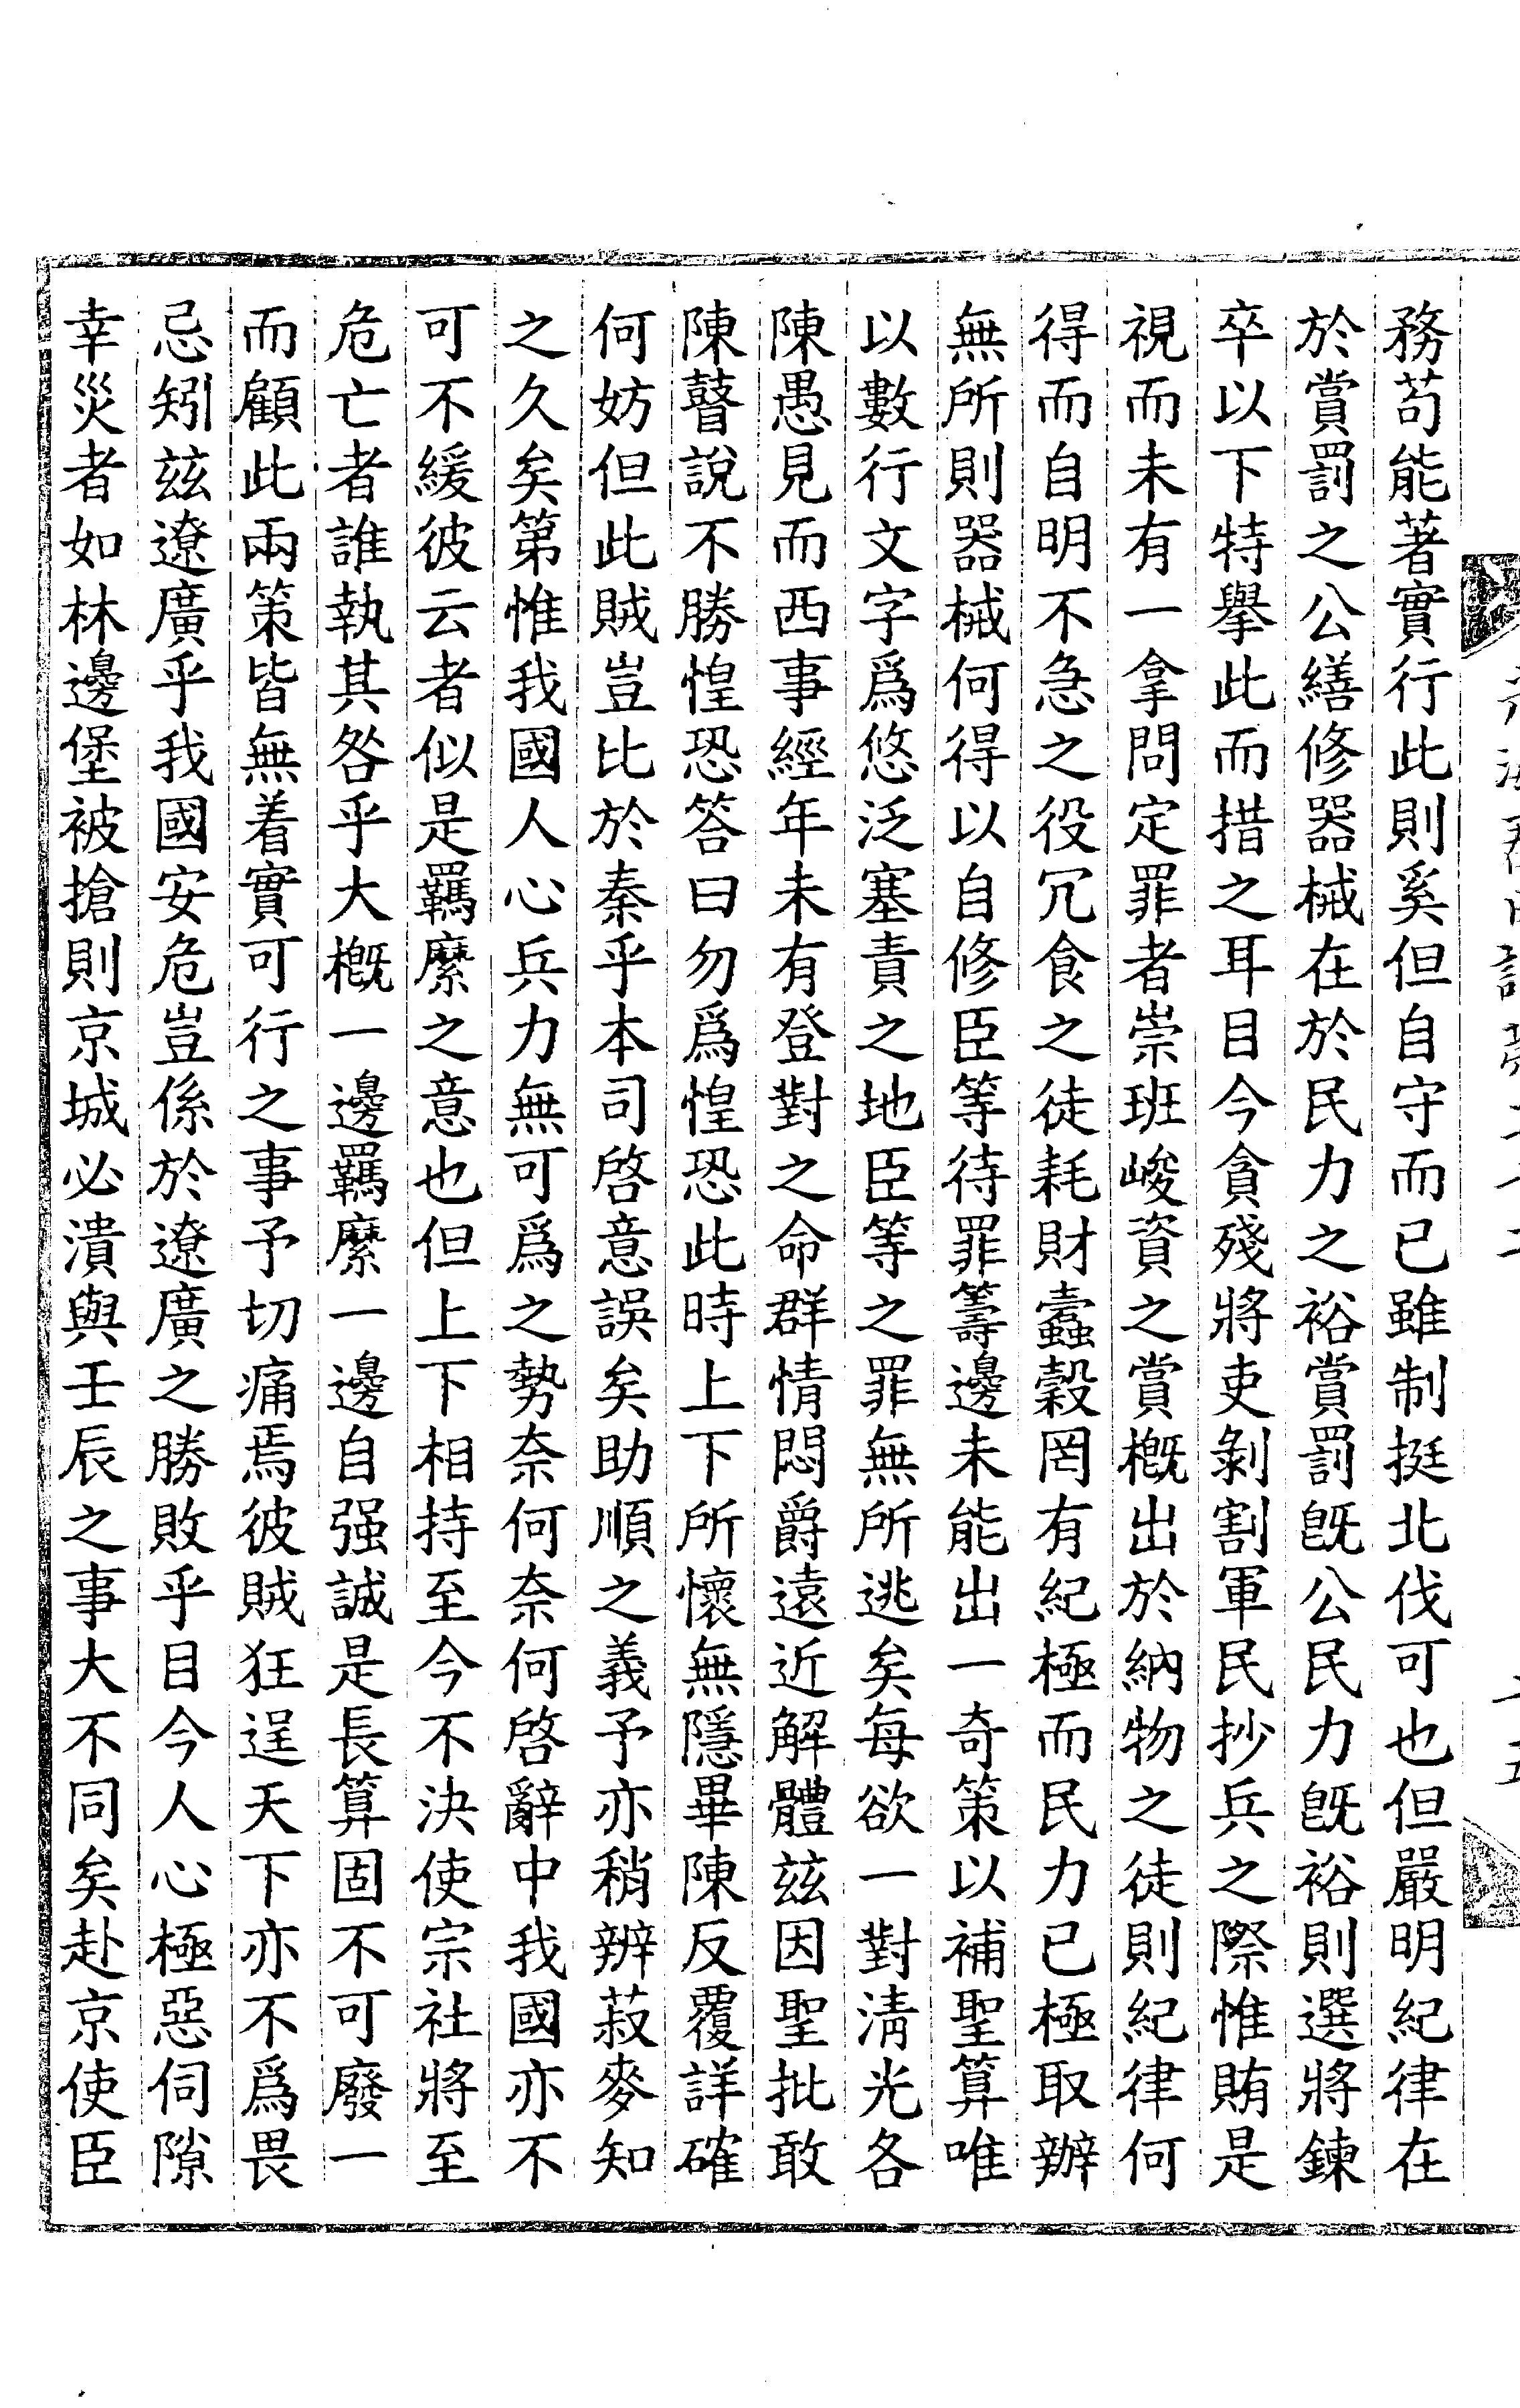 務苟能著實行此則奚但自守而已雖制挺北伐可也但嚴明紀律在
於賞罰之公繕修器械在於民力之裕賞罰旣公民力旣裕則選將鍊
卒以下特擧此而措之耳目今貪殘將吏剝割軍民抄兵之際惟賄是
視而未有一拿問定罪者崇班峻資之賞槪出於納物之徒則紀律何
得而自明不急之役冗食之徒耗財蠹穀罔有紀極而民力已極取辦
無所則器械何得以自修臣等待罪籌邊未能出一奇策以補聖算唯
以數行文字爲悠泛塞責之地臣等之罪無所逃矣每欲一對淸光各
陳愚見而西事經年未有登對之命群情悶爵遠近解體玆因聖批敢
陳瞽說不勝惶恐答曰勿爲惶恐此時上下所懷無隱畢陳反覆詳確
何妨但此賊豈比於秦乎本司啓意誤矣助順之義予亦稍辨菽麥知
之久矣第惟我國人心兵力無可爲之勢奈何奈何啓辭中我國亦不
可不緩彼云者似是羈縻之意也但上下相持至今不決使宗社將至
危亡者誰執其咎乎大槪一邊羈縻一邊自强誠是長算固不可廢一
而顧此兩策皆無着實可行之事予切痛焉彼賊狂逞天下亦不爲畏
忌矧玆遼廣乎我國安危豈係於遼廣之勝敗乎目今人心極惡伺隙
幸災者如林邊堡被搶則京城必潰與壬辰之事大不同矣赴京使臣